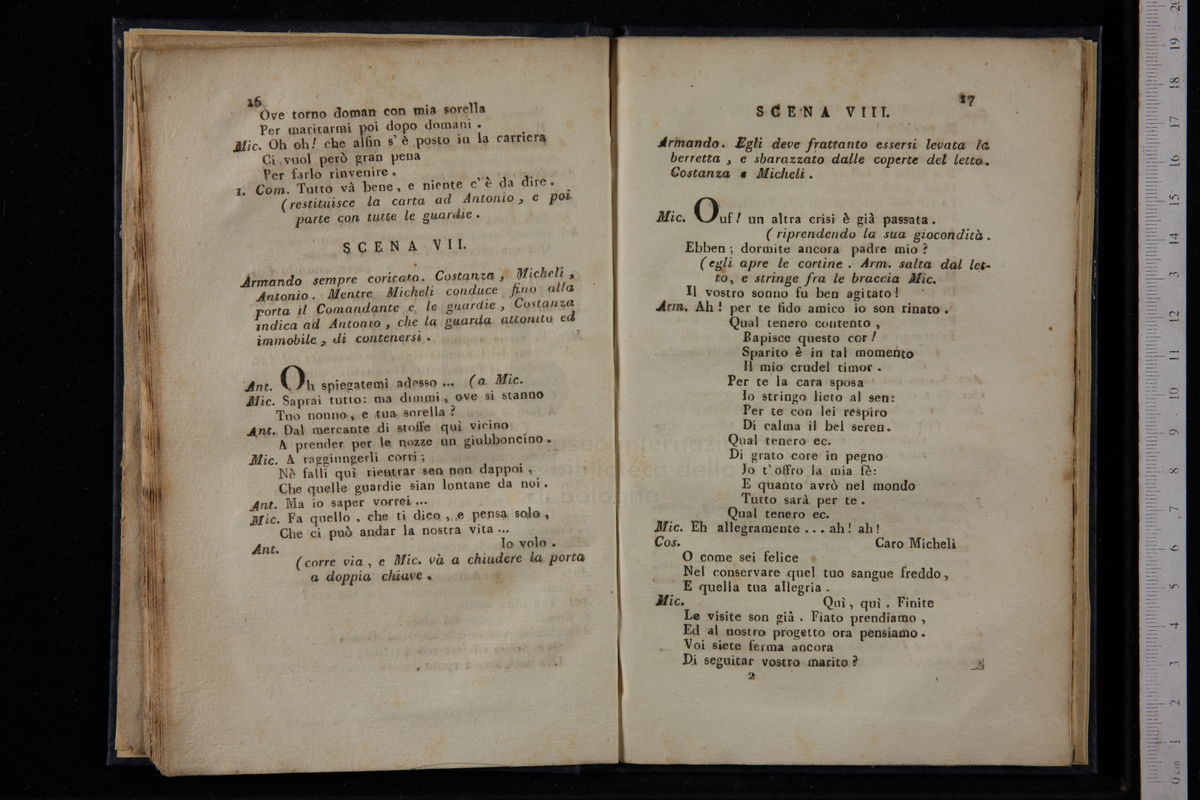 16
Ove torno doman con mia sorella
Per maritarmi poi dopo domani .
Mic. Oh oh! che alfin s' è posto in la carriera
Ci vuol però gran pena
Per farlo rinvenire .
1. Com. Tutto và bene, e niente c' è da dire .
(restituisce la carta ad Antonio, e poi
parte con tutte le guardie .
SCENA VII.
Armando sempre coricato. Costanza, Micheli,
Antonio. Mentre Micheli conduce fino alla
porta il Comandante e le guardie, Costanza
indica ad Antonio, che la guarda attonito ed
immobile, di contenersi .
Ant. Oh spiegatemi adesso ... (a Mic.
Mic. Saprai tutto: ma dimmi, ove si stanno
Tuo nonno, e tua sorella ?
Ant. Dal mercante di stoffe quì vicino
A prender per le nozze un giubboncino .
Mic. A raggiungerli corri ;
Nè falli quì rientrar sen non dappoi,
Che quelle guardie sian lontane da noi .
Ant. Ma io saper vorrei ...
Mic. Fa quello, che ti dico, e pensa solo,
Che ci può andar la nostra vita ...
Ant. Io volo .
(corre via, e Mic. và a chiudere la porta
a doppia chiave .
17
SCENA VIII.
Armando. Egli deve frattanto essersi levata la
berretta, e sbarazzato dalle coperte del letto.
Costanza e Micheli .
Mic. Ouf! un altra crisi è già passata .
(riprendendo la sua giocondità .
Ebben ; dormite ancora padre mio ?
(egli apre le cortine . Arm. salta dal let-
to, e stringe fra le braccia Mic.
Il vostro sonno fu ben agitato !
Arm. Ah ! per te fido amico io son rinato .
Qual tenero contento ,
Rapisce questo cor !
Sparito è in tal momento
Il mio crudel timor .
Per te la cara sposa
Io stringo lieto al sen:
Per te con lei respiro
Di calma il bel seren.
Qual tenero ec.
Di grato core in pegno
Io t' offro la mia fè:
E quanto avrò nel mondo
Tutto sarà per te .
Qual tenero ec.
Mic. Eh allegramente ... ah! ah!
Cos. Caro Micheli
O come sei felice
Nel conservare quel tuo sangue freddo,
E quella tua allegria .
Mic. Quì, quì . Finite
Le visite son già . Fiato prendiamo ,
Ed al nostro progetto ora pensiamo .
Voi siete ferma ancora
Di seguitar vostro marito ?
2